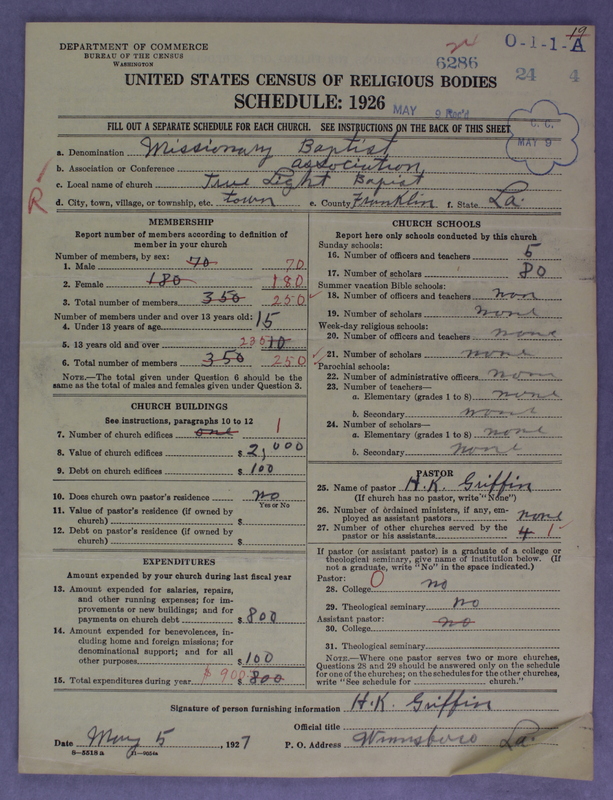 19
DEPARTMENT OF COMMERCE
BUREAU OF THE CENSUS
WASHINGTON
6286
O-1-1-A
24 4
UNITED STATES CENSUS OF RELIGIOUS BODIES
SCHEDULE: 1926
MAY 9 Rec'd
C. C.
MAY 9
FILL OUT A SEPARATE SCHEDULE FOR EACH CHURCH. SEE INSTRUCTIONS ON THE BACK OF THIS SHEET
a. Denomination Missionary Baptist
b. Association or Conference association
c. Local name of church True Light Bapist
R
d. City, town, village, or township, etc. town e. County Franklin f. State La.
MEMBERSHIP
Report number of members according to definition of
member in your church
Number of members, by sex:
1. Male 70 70
2. Female 180 180
3. Total number of members 350 250
Number of members under and over 13 years old:
4. Under 13 years of age 15
5. 13 years old and over 235 10
6. Total number of members 350 250
NOTE.—The total given under Question 6 should be the
same as the total of males and females given under Question 3.
CHURCH BUILDINGS
See instructions, paragraphs 10 to 12
7. Number of church edifices one 1
8. Value of church edifices $ 2,000
9. Debt on church edifices $ 100
10. Does church own pastor's residence no
Yes or No
11. Value of pastor's residence (if owned by
church) $
12. Debt on pastor's residence (if owned by
church) $
EXPENDITURES
Amount expended by your church during last fiscal year
13. Amount expended for salaries, repairs,
and other running expenses; for im-
provements or new buildings; and for
payments on church debt $ 800
14. Amount expended for benevolences, in-
cluding home and foreign missions; for
denominational support; and for all
other purposes $ 100
15. Total expenditures during year $ 900 $ 800
CHURCH SCHOOLS
Report here only schools conducted by this church
Sunday schools:
16. Number of officers and teachers 5
17. Number of scholars 80
Summer vacation Bible schools:
18. Number of officers and teachers non
19. Number of scholars none
Week-day religious schools:
20. Number of officers and teachers none
21. Number of scholars none
Parochial schools:
22. Number of administrative officers non
23. Number of teachers—
a. Elementary (grades 1 to 8) none
b. Secondary none
24. Number of scholars—
a. Elementary (grades 1 to 8) none
b. Secondary none
PASTOR
25. Name of pastor H. K. Griffin
(If church has no pastor, write "None")
26. Number of ordained ministers, if any, em-
ployed as assistant pastors none
27. Number of other churches served by the
pastor or his assistants 4 1
If pastor (or assistant pastor) is a graduate of a college or
theological seminary, give name of institution below. (If
not a graduate, write "No" in the space indicated.)
Pastor:
28. College 0 no
29. Theological seminary No
Assistant pastor:
30. College no
31. Theological seminary
NOTE.—Where one pastor serves two or more churches,
Questions 28 and 29 should be answered only on the schedule
for one of the churches; on the schedules for the other churches,
write "See schedule for church."
Signature of person furnishing information H. K. Griffin
Official title
Date May 5, 1927 P. O. Address Winnsboro La.
8—5518 a 11—9054a